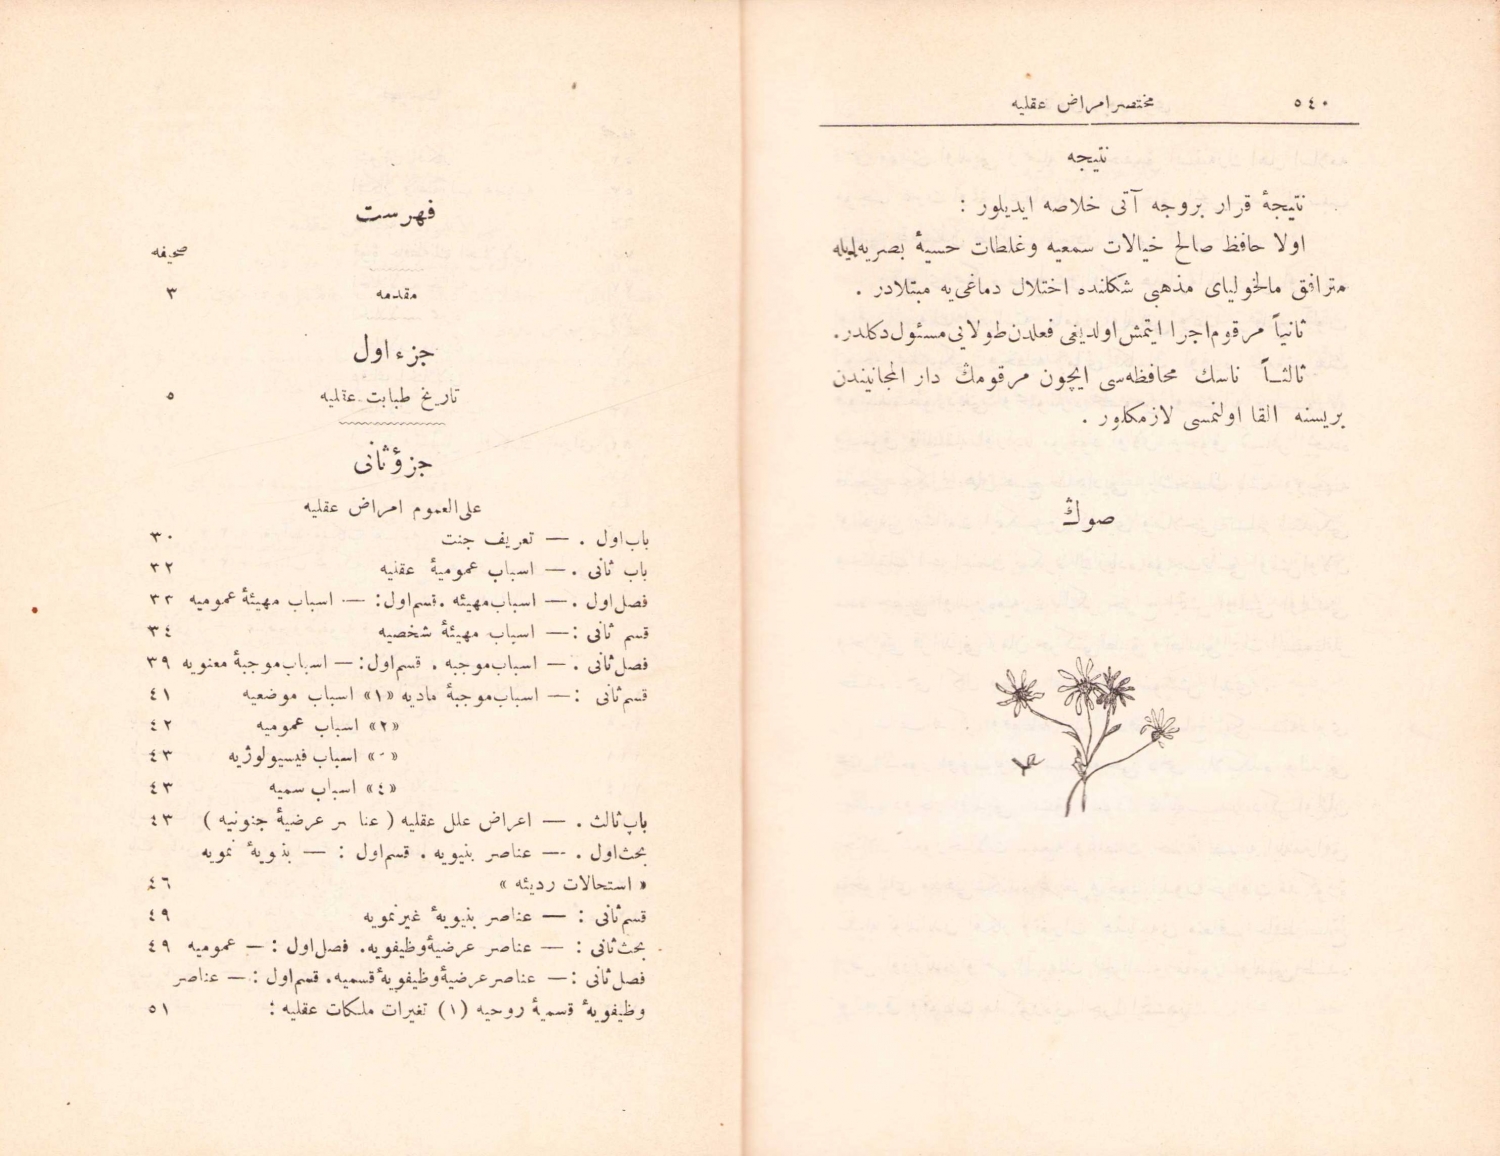 ٥٤٠
مختصر امراض عقلیه
نتیجه
نتیجهٔ قرار بروجه آتی خلاصه ایدیلور :
اولا حافظ صالح خیالات سمعیه وغلطات حسیهٔ بصریه ایله
مترافق مالخولیای مذهبی شکلنده اختلال دماغی‌یه مبتلادر .
ثانیاً مرقوم اجرا ایتمش اولدیغی فعلدن طولایی مسئول دکلدر.
ثالثاً ناسك محافظه‌سی ایچون مرقومك دار المجانیندن
بریسنه القا اولنمسی لازمکلور .
صوڭ
فهرست
صحیفه
مقدمه ٣
جزء اول
تاریخ طبابت عقلیه ٥
جزؤ ثانی
علی العموم امراض عقلیه
باب اول . — تعریف جنت ٣٠
باب ثانی . — اسباب عمومیهٔ عقلیه ٣٢
فصل اول . — اسباب مهیئه . قسم اول : — اسباب مهیئهٔ عمومیه ٣٢
قسم ثانی : — اسباب مهیئهٔ شخصیه ٣٤
فصل ثانی . — اسباب موجبه . قسم اول : — اسباب موجبهٔ معنویه ٣٩
قسم ثانی : — اسباب موجبهٔ مادیه «١» اسباب موضعیه ٤١
«٢» اسباب عمومیه ٤٢
اسباب فیسیولوژیه ٤٣
«٤» اسباب سمیه ٤٣
باب ثالث . — اعراض علل عقلیه ( عناصر عرضیهٔ جنونیه ) ٤٣
بحث اول . — عناصر بنیویه . قسم اول : — بنیویهٔ نمویه
« استحالات ردیئه » ٤٦
قسم ثانی : — عناصر بنیویهٔ غیر نمویه ٤٩
بحث ثانی : — عناصر عرضیهٔ وظیفویه. فصل اول : — عمومیه ٤٩
فصل ثانی : — عناصر عرضیهٔ وظیفویهٔ قسمیه. قسم اول : — عناصر
وظیفویهٔ قسمیهٔ روحیه (١) تغیرات ملکات عقلیه : ٥١